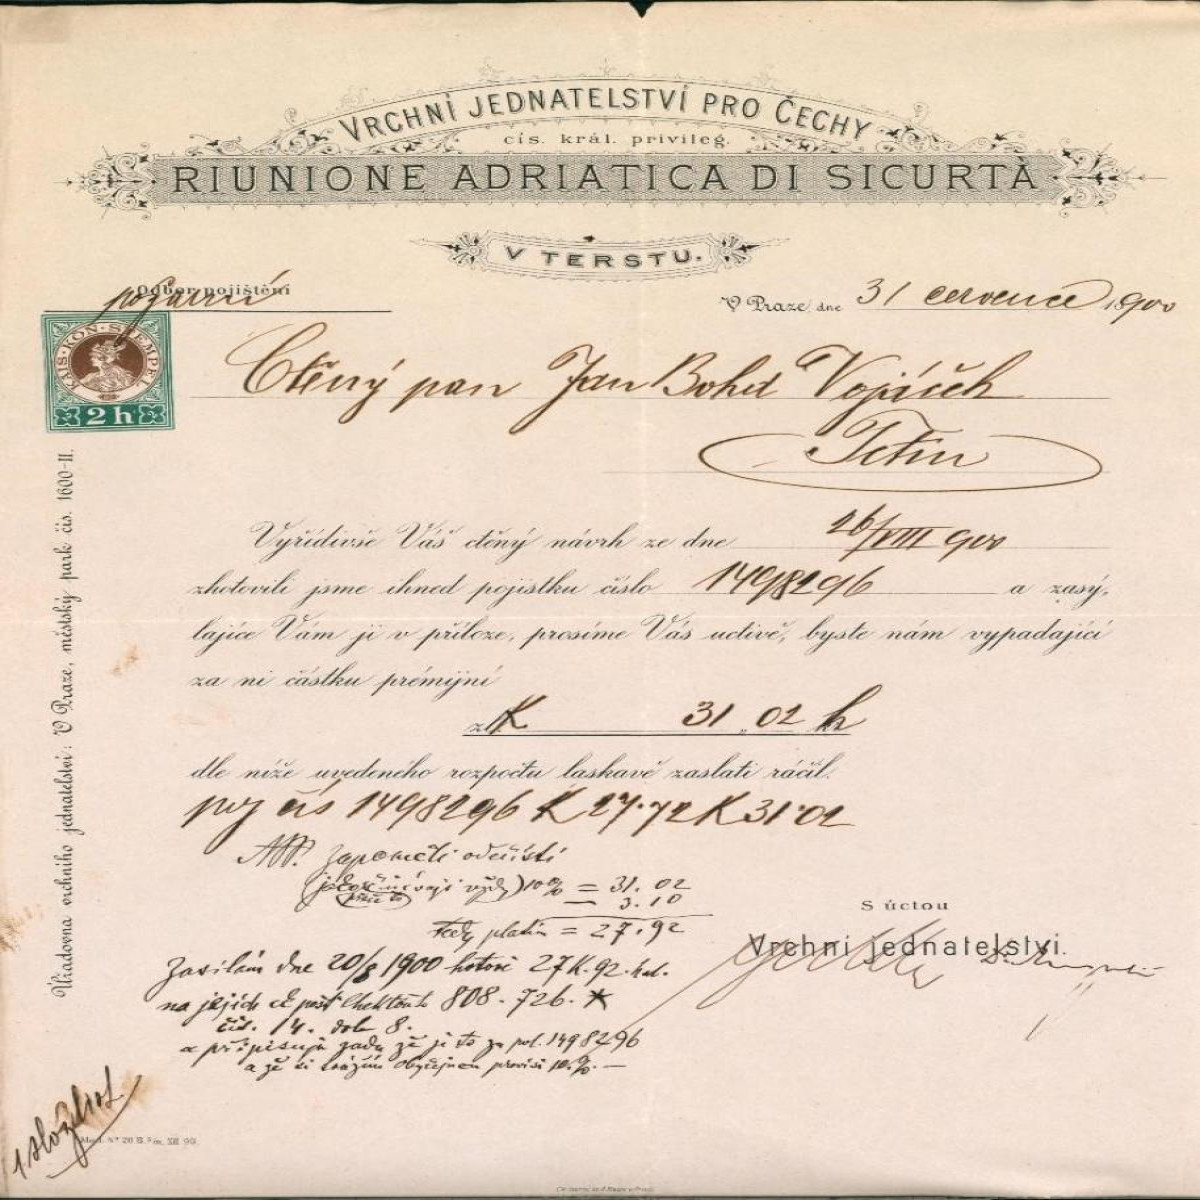 VRCHNÍ JEDNATELSTVÍ PRO ČECHY
cís. král. privileg.
RIUNIONE ADRIATICA DI SICURTÀ
V TERSTU.
Odbor pojištění
požární
V Praze, dne 31 července 1900
KAIS·KÖN·STEMPEL
2 h
Ctěný pan Jan Bohd Vojáček
Tetín
Vyřídivše Váš ctěný návrh ze dne 26/VIII 900
zhotovili jsme ihned pojistku číslo 1498296 a zasý-
lajíce Vám ji v příloze, prosíme Vás uctivě, byste nám vypadající
za ni částku prémijní
zl K 31 „ 02 h
dle níže uvedeného rozpočtu laskavě zaslati ráčil.
poj čís 1498296 K 27·72 K 31·02
zapomněli odečísti
10% = 31.02
— 3.10
Tedy platím = 27.92
Zasílám dne 20/8 1900 hotově 27 K. 92. hal.
na jejich 808.726.
čís. 14. 8.
a připisuji že je to za pol. 1498296
a že si srážím obyčejnou provisi 10.%. —
S úctou
Vrchní jednatelství.
Úřadovna vrchního jednatelství: V Praze, městský park čís. 1600-II.
1 složenka